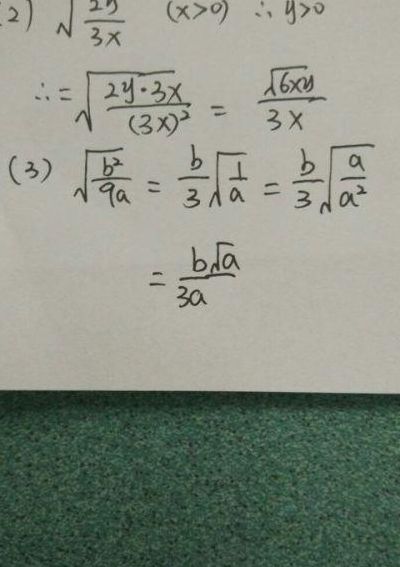 2) √(2y/3x) (x>0) ∴ y>0
∴ = √(2y·3x/(3x)²) = √6xy/3x
(3) √(b²/9a) = b/3 √(1/a) = b/3 √(a/a²)
= b√a/3a